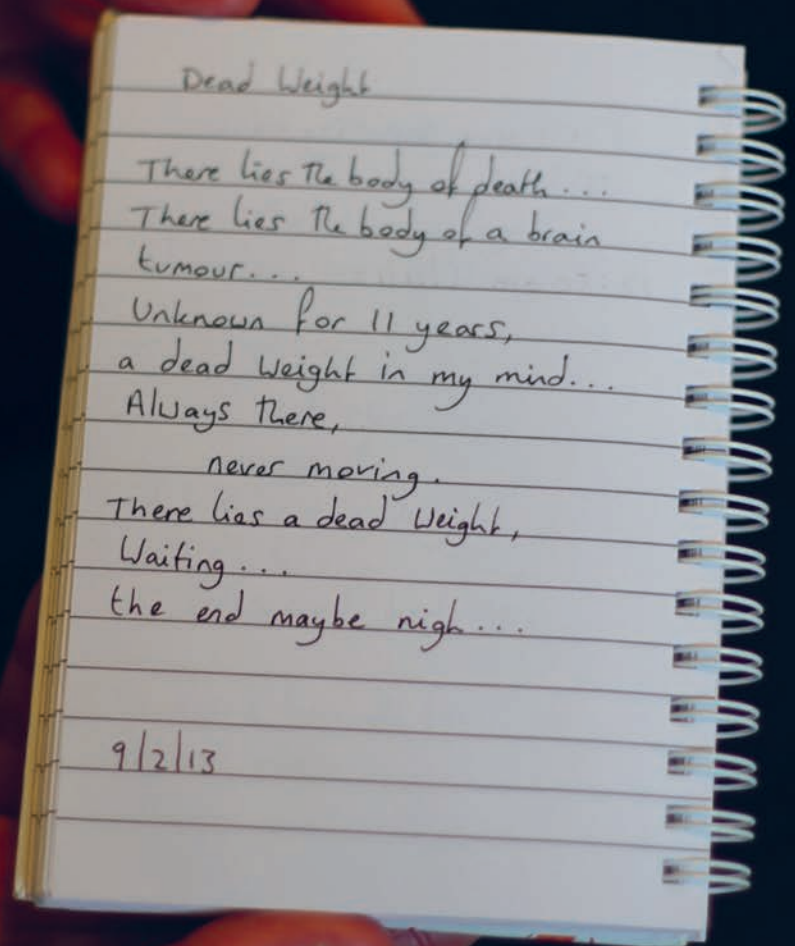 Dead Weight
There lies the body of death...
There lies the body of a brain
tumour...
Unknown for 11 years,
a dead weight in my mind...
Always there,
never moving.
There lies a dead weight,
Waiting...
the end maybe nigh...
9/2/13